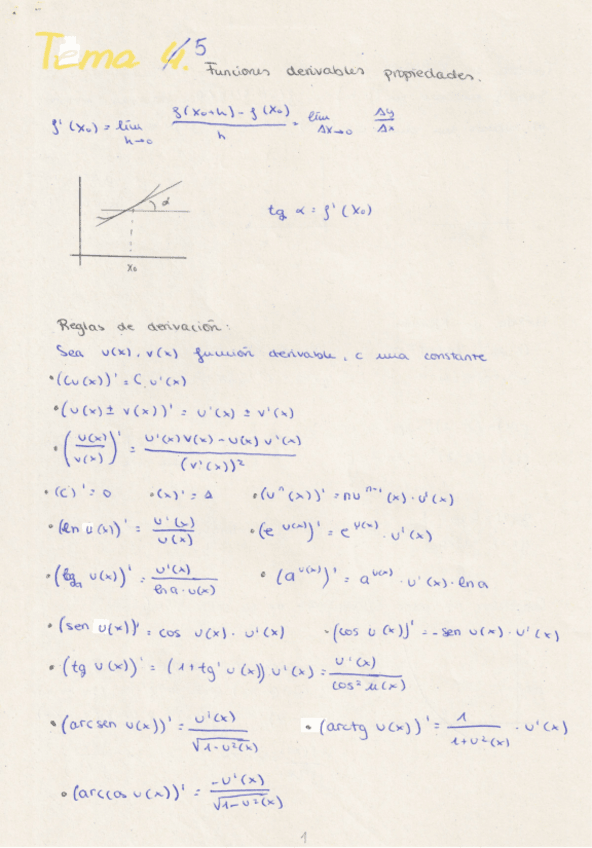 Tema 4. 5
Funciones derivables propiedades.
f'(x₀) = lím h→0 (f(x₀+h) - f(x₀))/h = lím Δx→0 Δy/Δx
α
x₀
tg α = f'(x₀)
Reglas de derivación:
Sea u(x), v(x) función derivable, c una constante
• (cu(x))' = C. u'(x)
• (u(x) ± v(x))' = u'(x) ± v'(x)
• (u(x)/v(x))' = (u'(x) v(x) - u(x) v'(x))/(v'(x))²
• (c)' = 0 • (x)' = 1 • (uⁿ(x))' = nuⁿ⁻¹(x) · u'(x)
• (ln u(x))' = u'(x)/u(x) • (e^u(x))' = e^u(x) · u'(x)
• (logₐ u(x))' = u'(x)/(ln a · u(x)) • (a^u(x))' = a^u(x) · u'(x) · ln a
• (sen u(x))' = cos u(x) · u'(x) • (cos u(x))' = -sen u(x) · u'(x)
• (tg u(x))' = (1+tg' u(x)) u'(x) = u'(x)/cos² u(x)
• (arcsen u(x))' = u'(x)/√(1-u²(x)) • (arctg u(x))' = 1/(1+u²(x)) · u'(x)
• (arccos u(x))' = -u'(x)/√(1-u²(x))
1